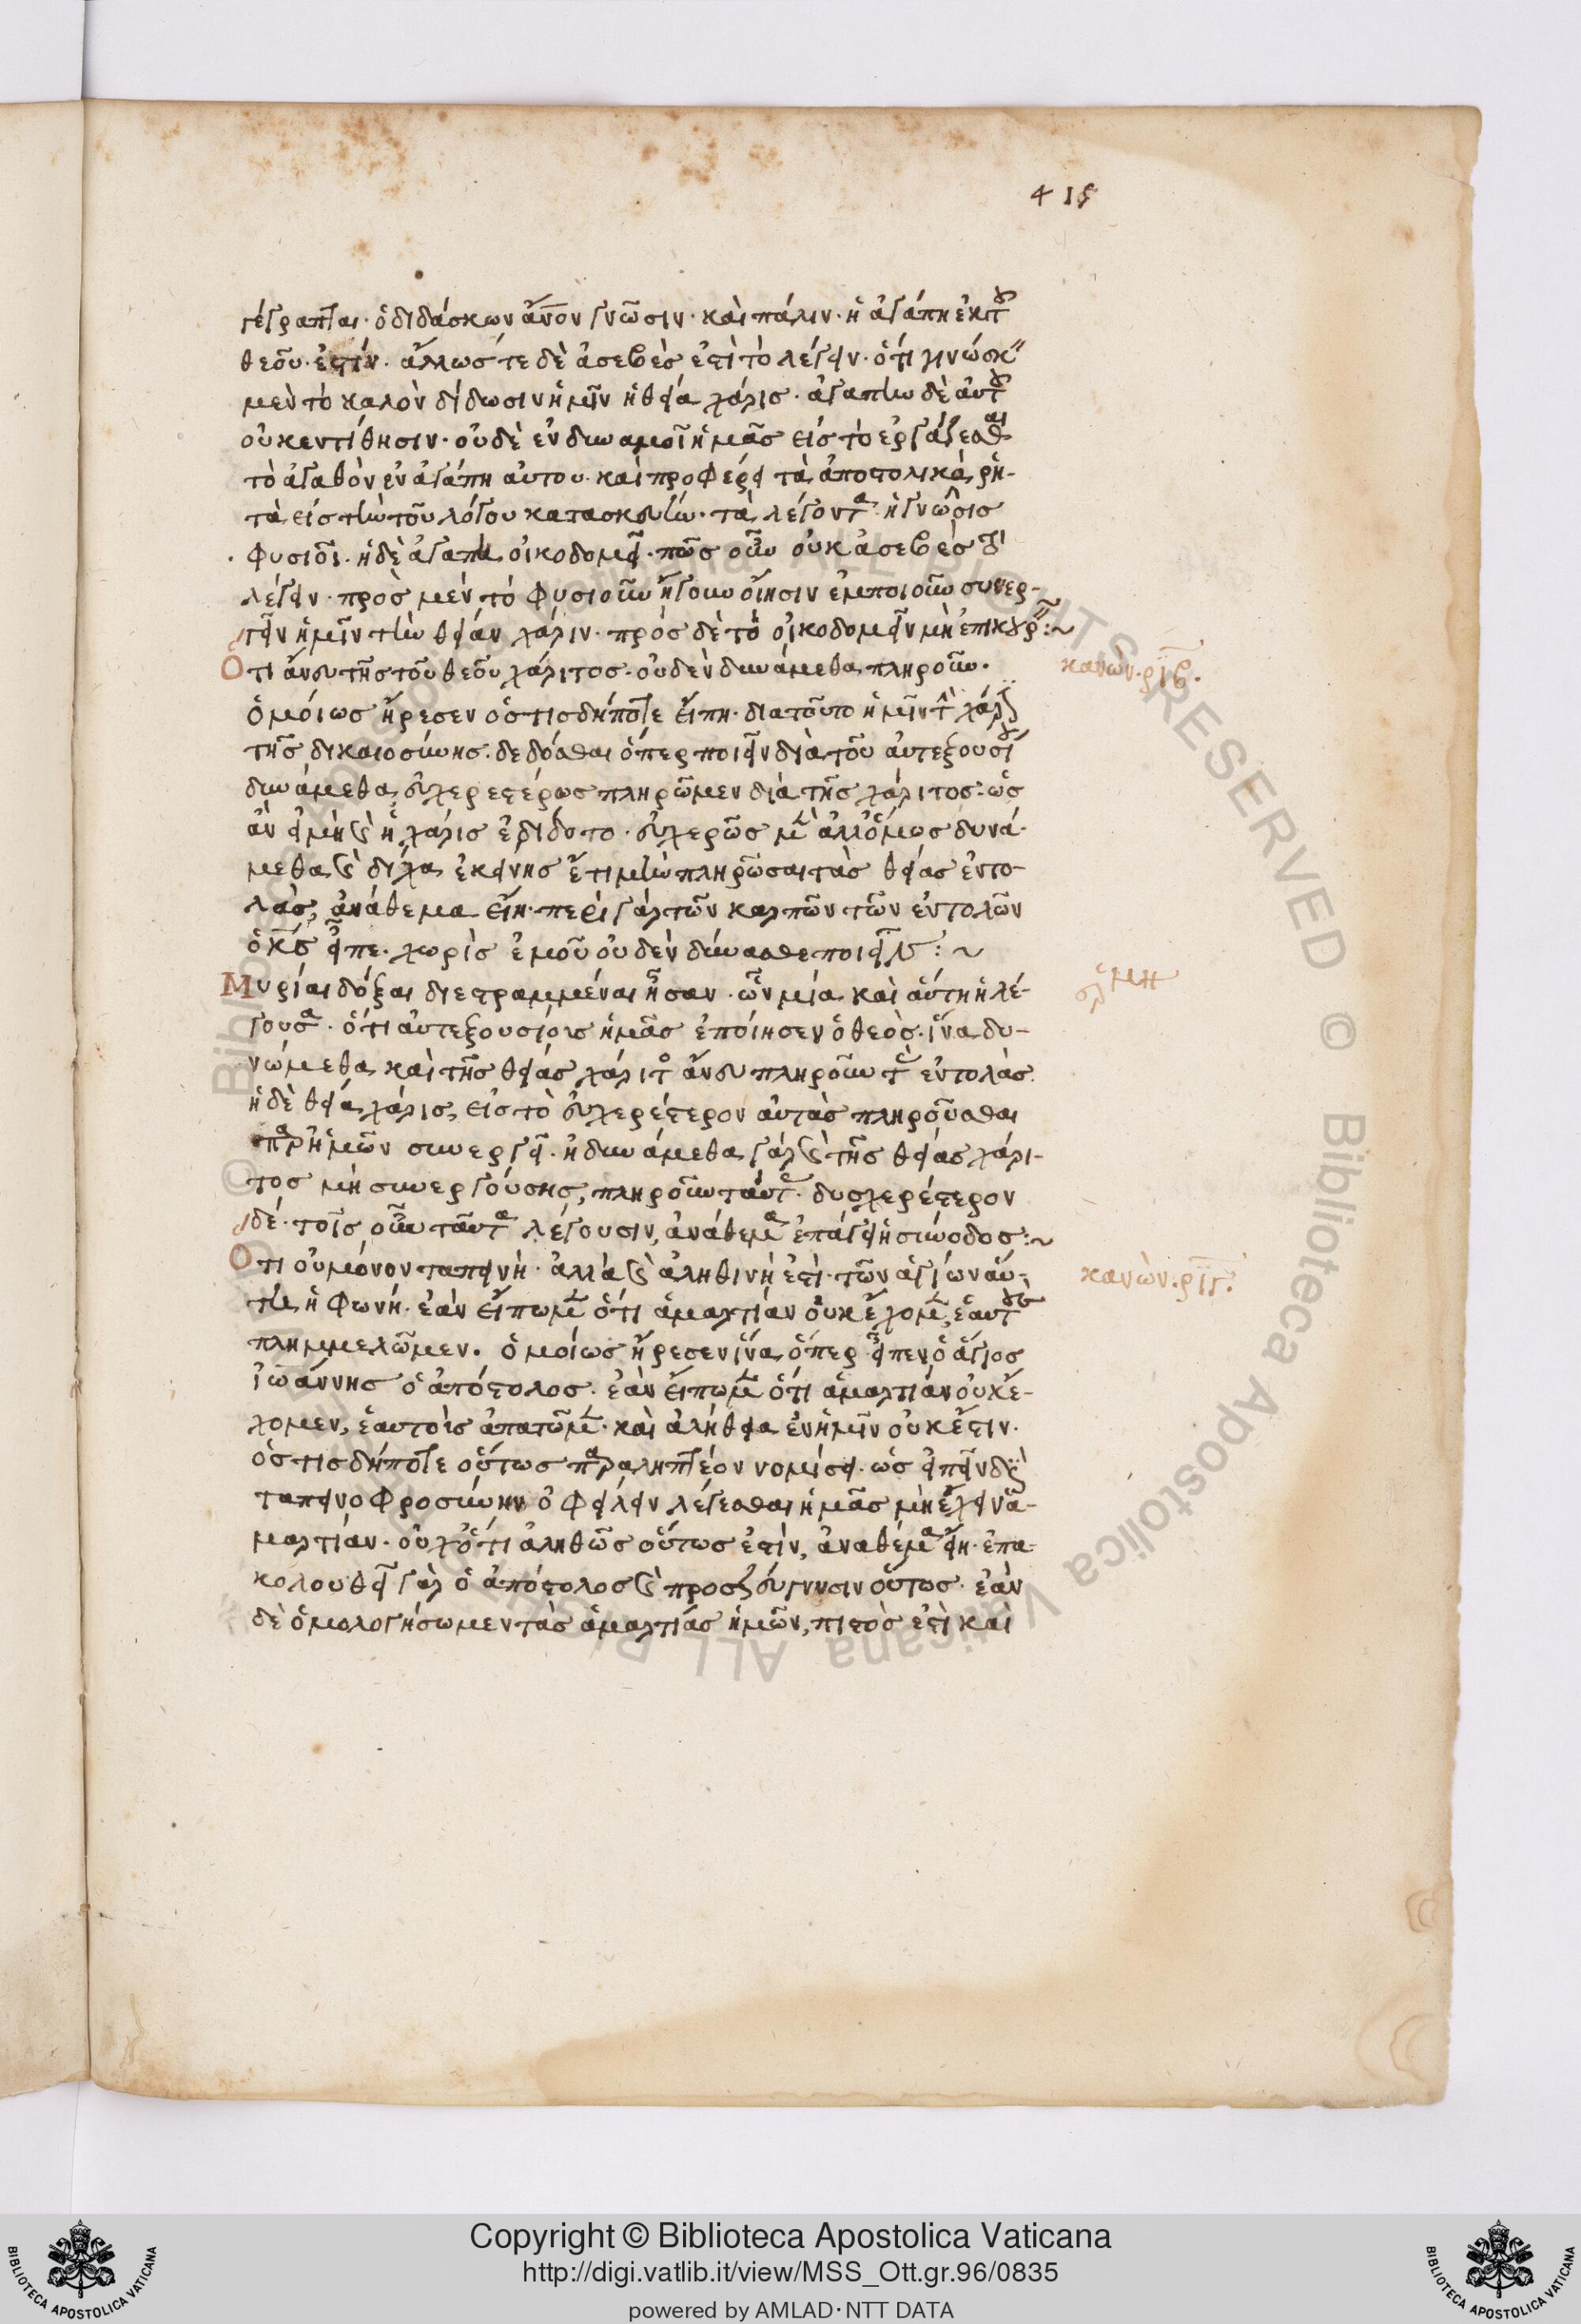 415
γέγραπται· ὁ διδάσκων ἄνον γνῶσιν· καὶ πάλιν· ἡ ἀγάπη ἐκ τοῦ
θεοῦ ἐστίν. ἄλλωστε δὲ ἀσεβὲς ἐστὶ τὸ λέγειν· ὅτι γινώσκειν
μὲν τὸ καλὸν δίδωσιν ἡμῖν ἡ θεία χάρις· ἀγάπην δὲ αὐτοῦ
οὐκ εντίθησιν· οὐδὲ ἐνδυναμοῖ ἡμᾶς εἰς τὸ ἐργάζεσθαι
τὸ ἀγαθὸν ἐν ἀγάπη αὐτου· καὶ προφέρει τὰ ἀποστολικὰ ῥη-
τὰ εἰς τὴν τοῦ λόγου κατασκευήν· τὰ λέγοντα ἡ γνῶσις
φυσιοῖ· ἡ δὲ ἀγάπη οἰκοδομεῖ· πῶς οὖν οὐκ ἀσεβὲς τὸ
λέγειν· πρὸς μὲν τὸ φυσιοῦν ἤγουν οἴησιν ἐμποιοῦν συνερ-
γεῖν ἡμῖν τὴν θείαν χάριν· πρὸς δὲ τὸ οἰκοδομεῖν μὴ ἐπικουρεῖν :~
Ὅτι ἄνευ τῆς τοῦ θεοῦ χάριτος· οὐδὲν δυνάμεθα πληροῦν.
κανὼν· ριβ.
ὁμοίως ἤρεσεν ὅστις δήποτε εἴπη· διατοῦτο ἡμῖν τὴν χάριν
τῆς δικαιοσύνης δεδόσθαι ὅπερ ποιεῖν διὰ τοῦ αὐτεξουσίου
δυνάμεθα, εὐχερεστέρως πληρῶμεν διὰ τῆς χάριτος: ὡς
ἂν εἰ μὴ καὶ ἡ χάρις ἐδίδοτο· εὐχερῶς μὲν ἀλλ' ὅμως δυνά-
μεθα καὶ δίχα ἐκείνης ἔτι μὴν πληρῶσαι τὰς θείας ἐντο-
λὰς, ἀνάθεμα εἴη· περὶ γὰρ τῶν καρπῶν τῶν ἐντολῶν
ὁ κς εἶπε· χωρὶς ἐμοῦ οὐδὲν δύνασθε ποιεῖν : ~
Μυρίαι δόξαι διεστραμμέναι ἦσαν· ὧν μία καὶ αὕτη ἡ λέ-
γουσα· ὅτι αὐτεξουσίοις ἡμᾶς ἐποίησεν ὁ θεὸς· ἵνα δυ-
νώμεθα καὶ τῆς θείας χάριτος ἄνευ πληροῦν τὰς ἐντολὰς.
ἡ δὲ θεία χάρις, εἰς τὸ εὐχερέστερον αὐτὰς πληροῦσθαι
παρ' ἡμῶν συνεργεῖ· ἠδυνάμεθα γὰρ καὶ τῆς θείας χάρι-
τος μὴ συνεργούσης, πληροῦν ταύτας· δυσχερέστερον
δέ· τοῖς οὖν ταῦτα λέγουσιν, ἀνάθεμα ἐπάγει ἡ σύνοδος :~
Ὅτι οὐ μόνον ταπεινὴ· ἀλλὰ καὶ ἀληθινὴ ἐστὶ· τῶν ἁγίων αὕ-
κανὼν· ριγ.
τη ἡ φωνή· ἐὰν εἴπωμεν ὅτι ἁμαρτίαν οὐκ ἔχομεν, ἑαυτοὺς
πλημμελῶμεν. ὁμοίως ἤρεσεν ἵνα ὅπερ εἶπεν ὁ ἅγιος
ἰωάννης ὁ ἀπόστολος· ἐὰν εἴπωμεν ὅτι ἁμαρτίαν οὐκ ἔ-
χομεν, ἑαυτοὶς ἀπατῶμεν· καὶ ἀλήθεια ἐν ἡμῖν οὐκ ἔστιν·
ὅστις δήποτε οὕτως παραληπτέον νομίσει· ὡς εἰπεῖν διὰ
ταπεινοφροσύνην ὀφείλειν λέγεσθαι ἡμᾶς μὴ ἔχειν ἁ-
μαρτίαν· οὐχ ὅτι ἀληθῶς οὕτως ἐστὶν, ἀναθέμα εἴη· ἐπα-
κολουθεῖ γὰρ ὁ ἀπόστολος καὶ προσζεύγνυσιν οὕτως· ἐὰν
δὲ ὁμολογήσωμεν τὰς ἁμαρτίας ἡμῶν, πιστὸς ἐστὶ καὶ
Copyright © Biblioteca Apostolica Vaticana
http://digi.vatlib.it/view/MSS_Ott.gr.96/0835
powered by AMLAD·NTT DATA